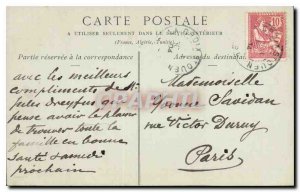 CARTE POSTALE
A UTILISER SEULEMENT DANS LE SERVICE INTÉRIEUR
(France, Algérie, Tunisie)
Partie réservée à la correspondance
Adresse du destinataire
10
avec les meilleurs
compliments de Mr
Jules Dreyfus qui
pense avoir le plaisir
de trouver toute la
famille en bonne
santé samedi
prochain
Mademoiselle
Yvonne Savidan
rue Victor Duruy
Paris